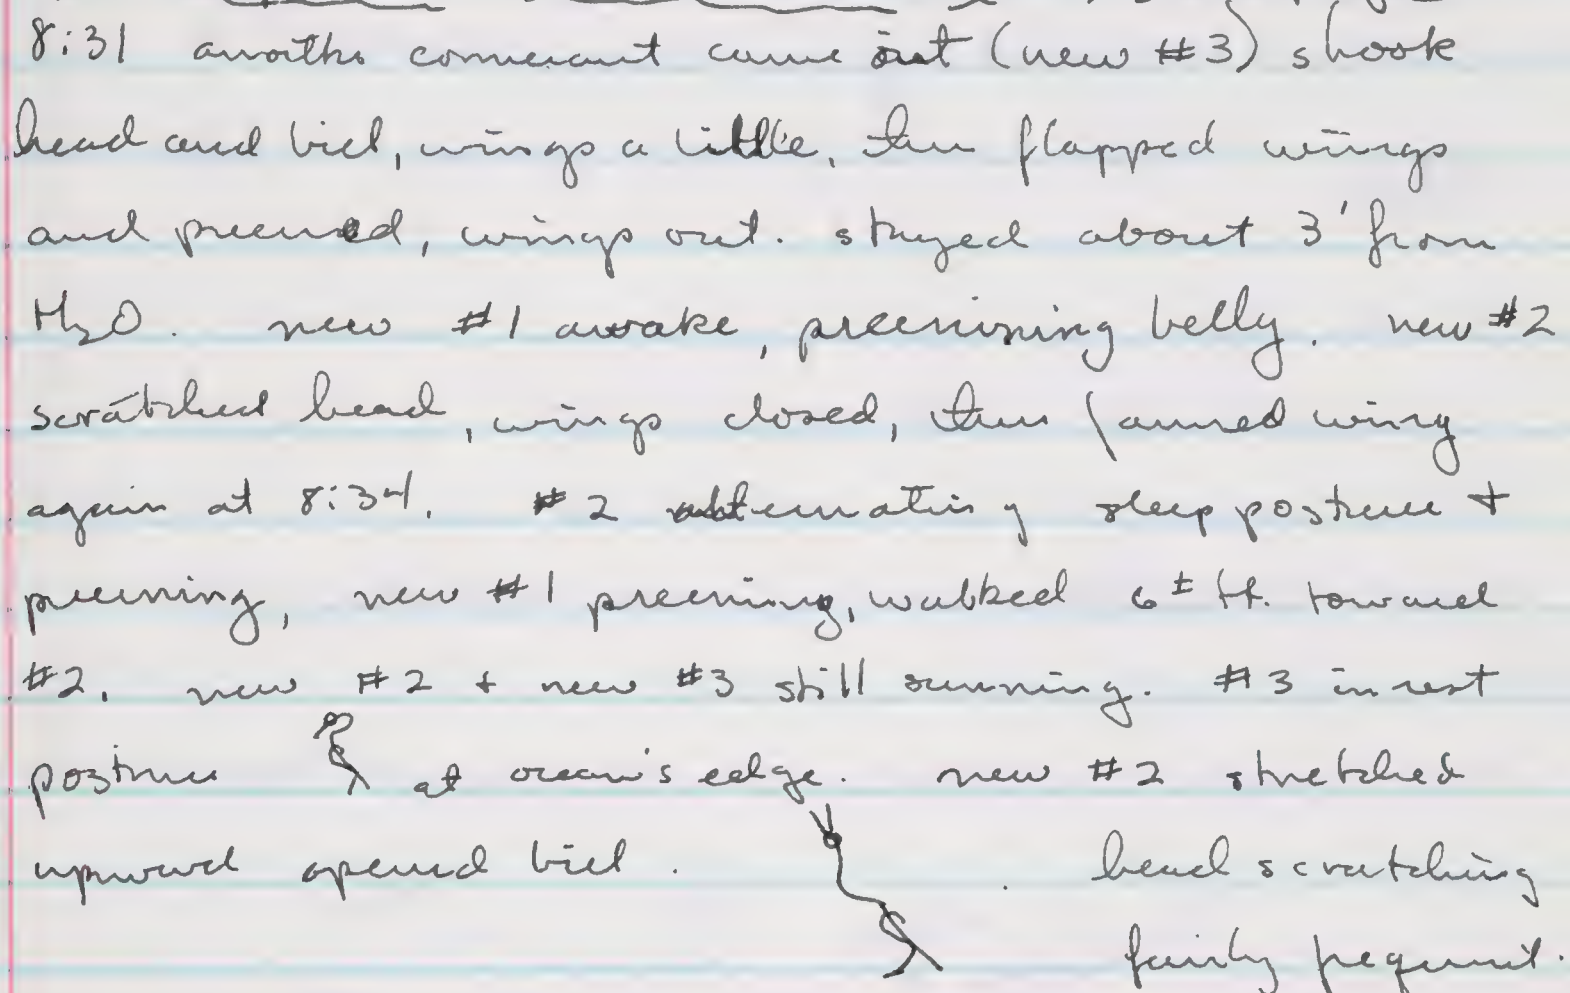 8:31 another cormorant came out (new #3) shook
head and bill, wings a little, then flapped wings
and preened, wings out. stayed about 3' from
H2O. new #1 awake, preenining belly. new #2
scratched head, wings closed, then fanned wing
again at 8:34. #2 alternating sleep posture +
preening, new #1 preening, walked 6± ft. toward
#2. new #2 + new #3 still sunning. #3 in rest
posture at ocean's edge. new #2 stretched
upward opened bill. head scratching
fairly frequent.